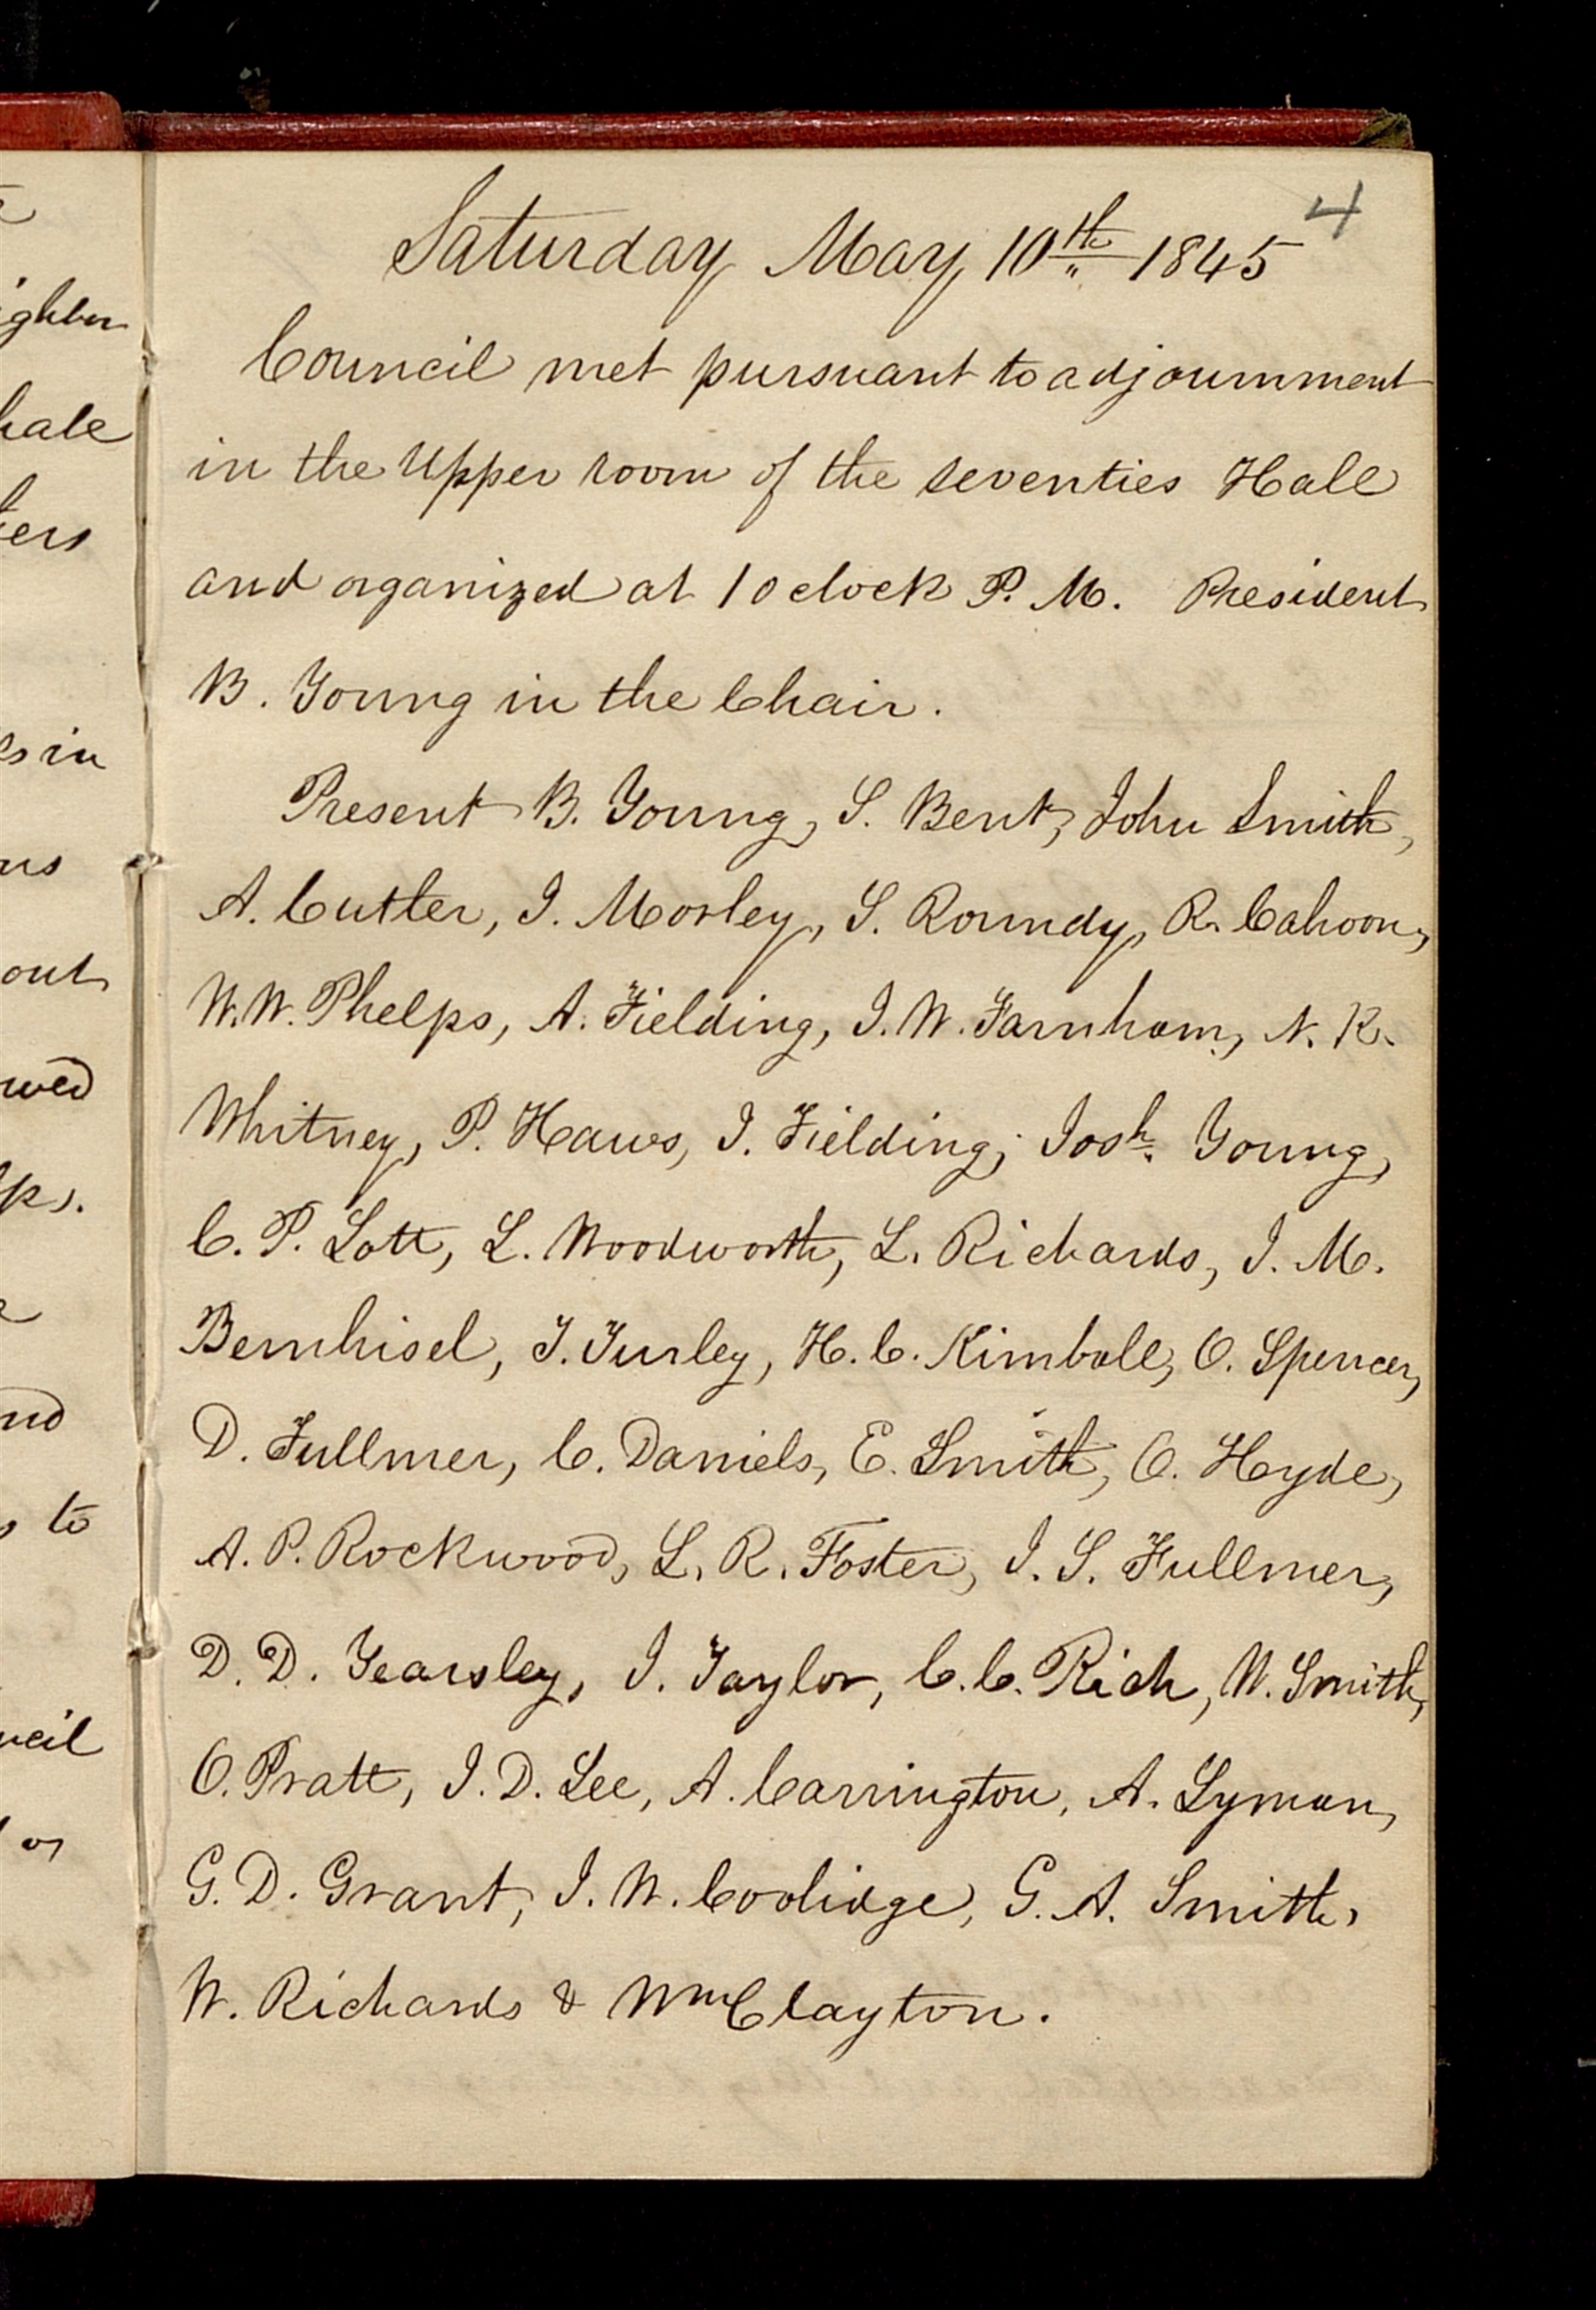 4
Saturday May 10th 1845
Council met pursuant to adjournment
in the Upper room of the seventies Hall
and organized at 1 o clock P. M. President
B. Young in the Chair.
Present B. Young, S. Bent, John Smith,
A. Cutler, I. Morley, S. Roundy, R. Cahoon,
W. W. Phelps, A. Fielding, J. W. Farnham, N. K.
Whitney, P. Haws, J. Fielding, Josh. Young,
C. P. Lott, L. Woodworth, L. Richards, J. M.
Bernhisel, T. Turley, H. C. Kimball, O. Spencer,
D. Fullmer, C. Daniels, E. Smith, O. Hyde,
A. P. Rockwood, L. R. Foster, J. S. Fullmer,
D. D. Yearsley, J. Taylor, C. C. Rich, W. Smith,
O. Pratt, J. D. Lee, A. Carrington, A. Lyman,
G. D. Grant, J. W. Coolidge, G. A. Smith,
W. Richards & Wm Clayton.